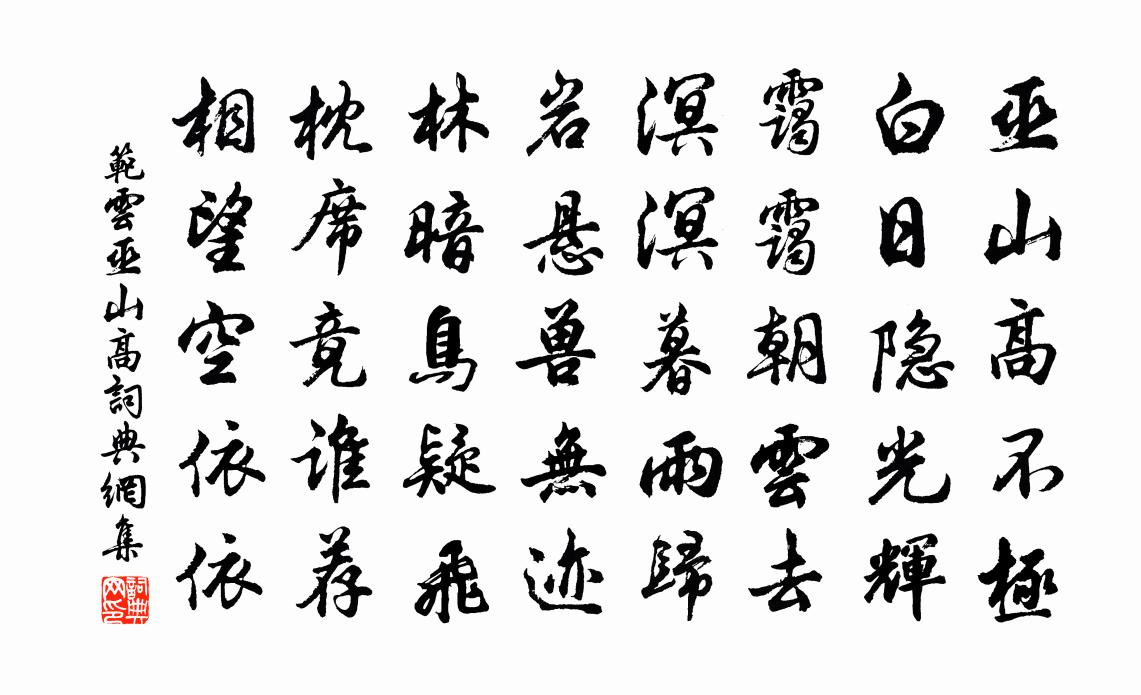 巫山高不極
白日隐光輝
霭霭朝雲去
溟溟暮雨歸
岩悬兽無迹
林暗鳥疑飛
枕席竟谁荐
相望空依依
範雲巫山高詞典網集
詞典网印